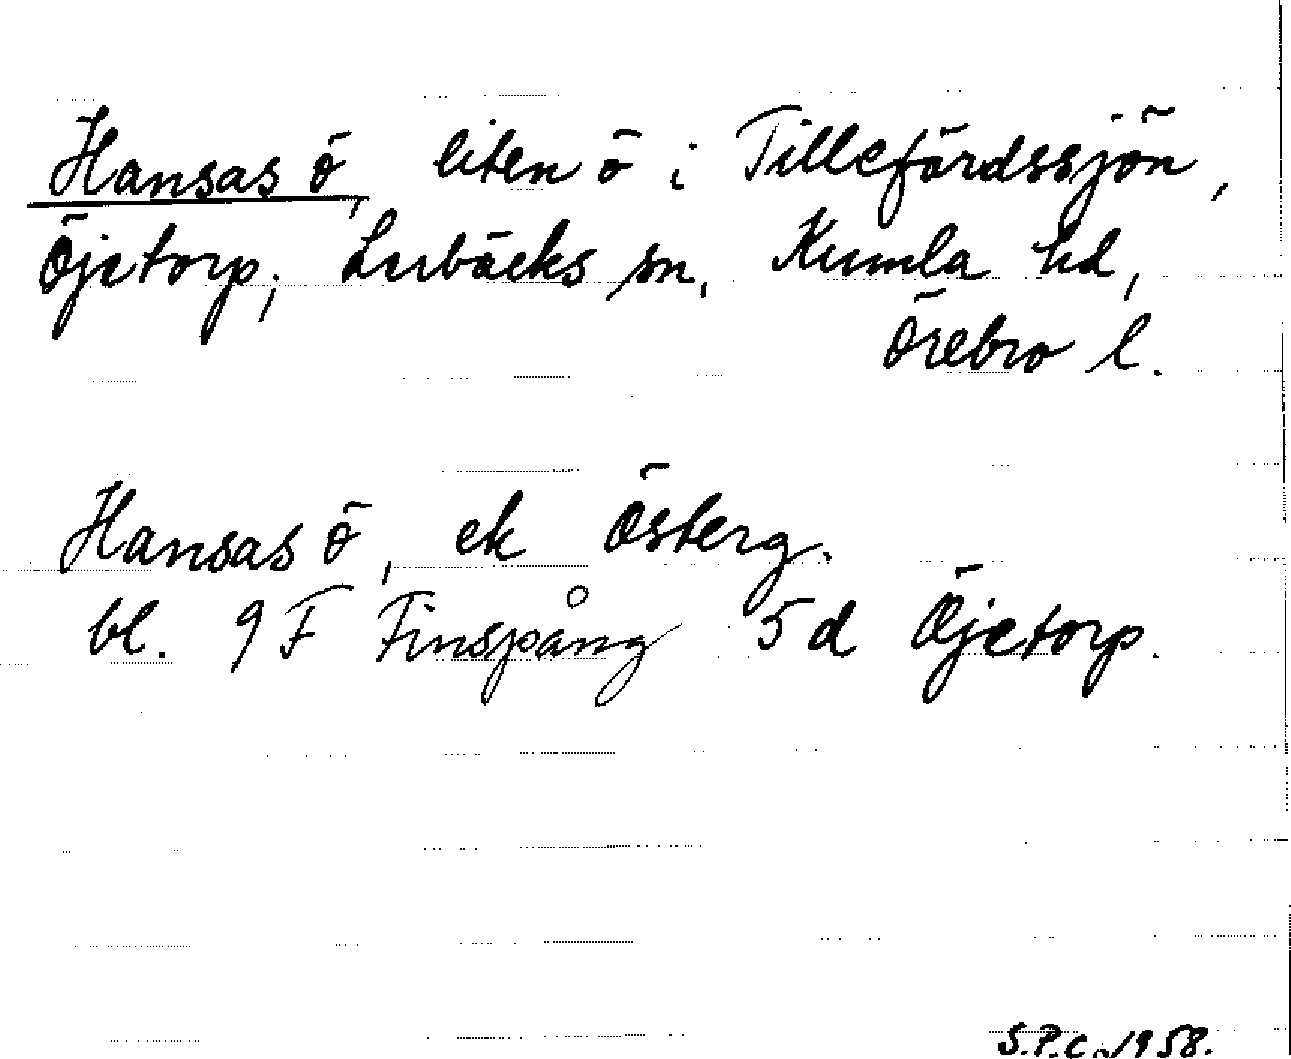 Hansas ö, liten ö i Tillefördssjön,
Öjetorp; Lerbäcks sn, Kumla hd,
Örebro l.
Hansas ö, ek Österg.
bl. 9F Finspång 5d Öjetorp.
S.P.C. 1958.